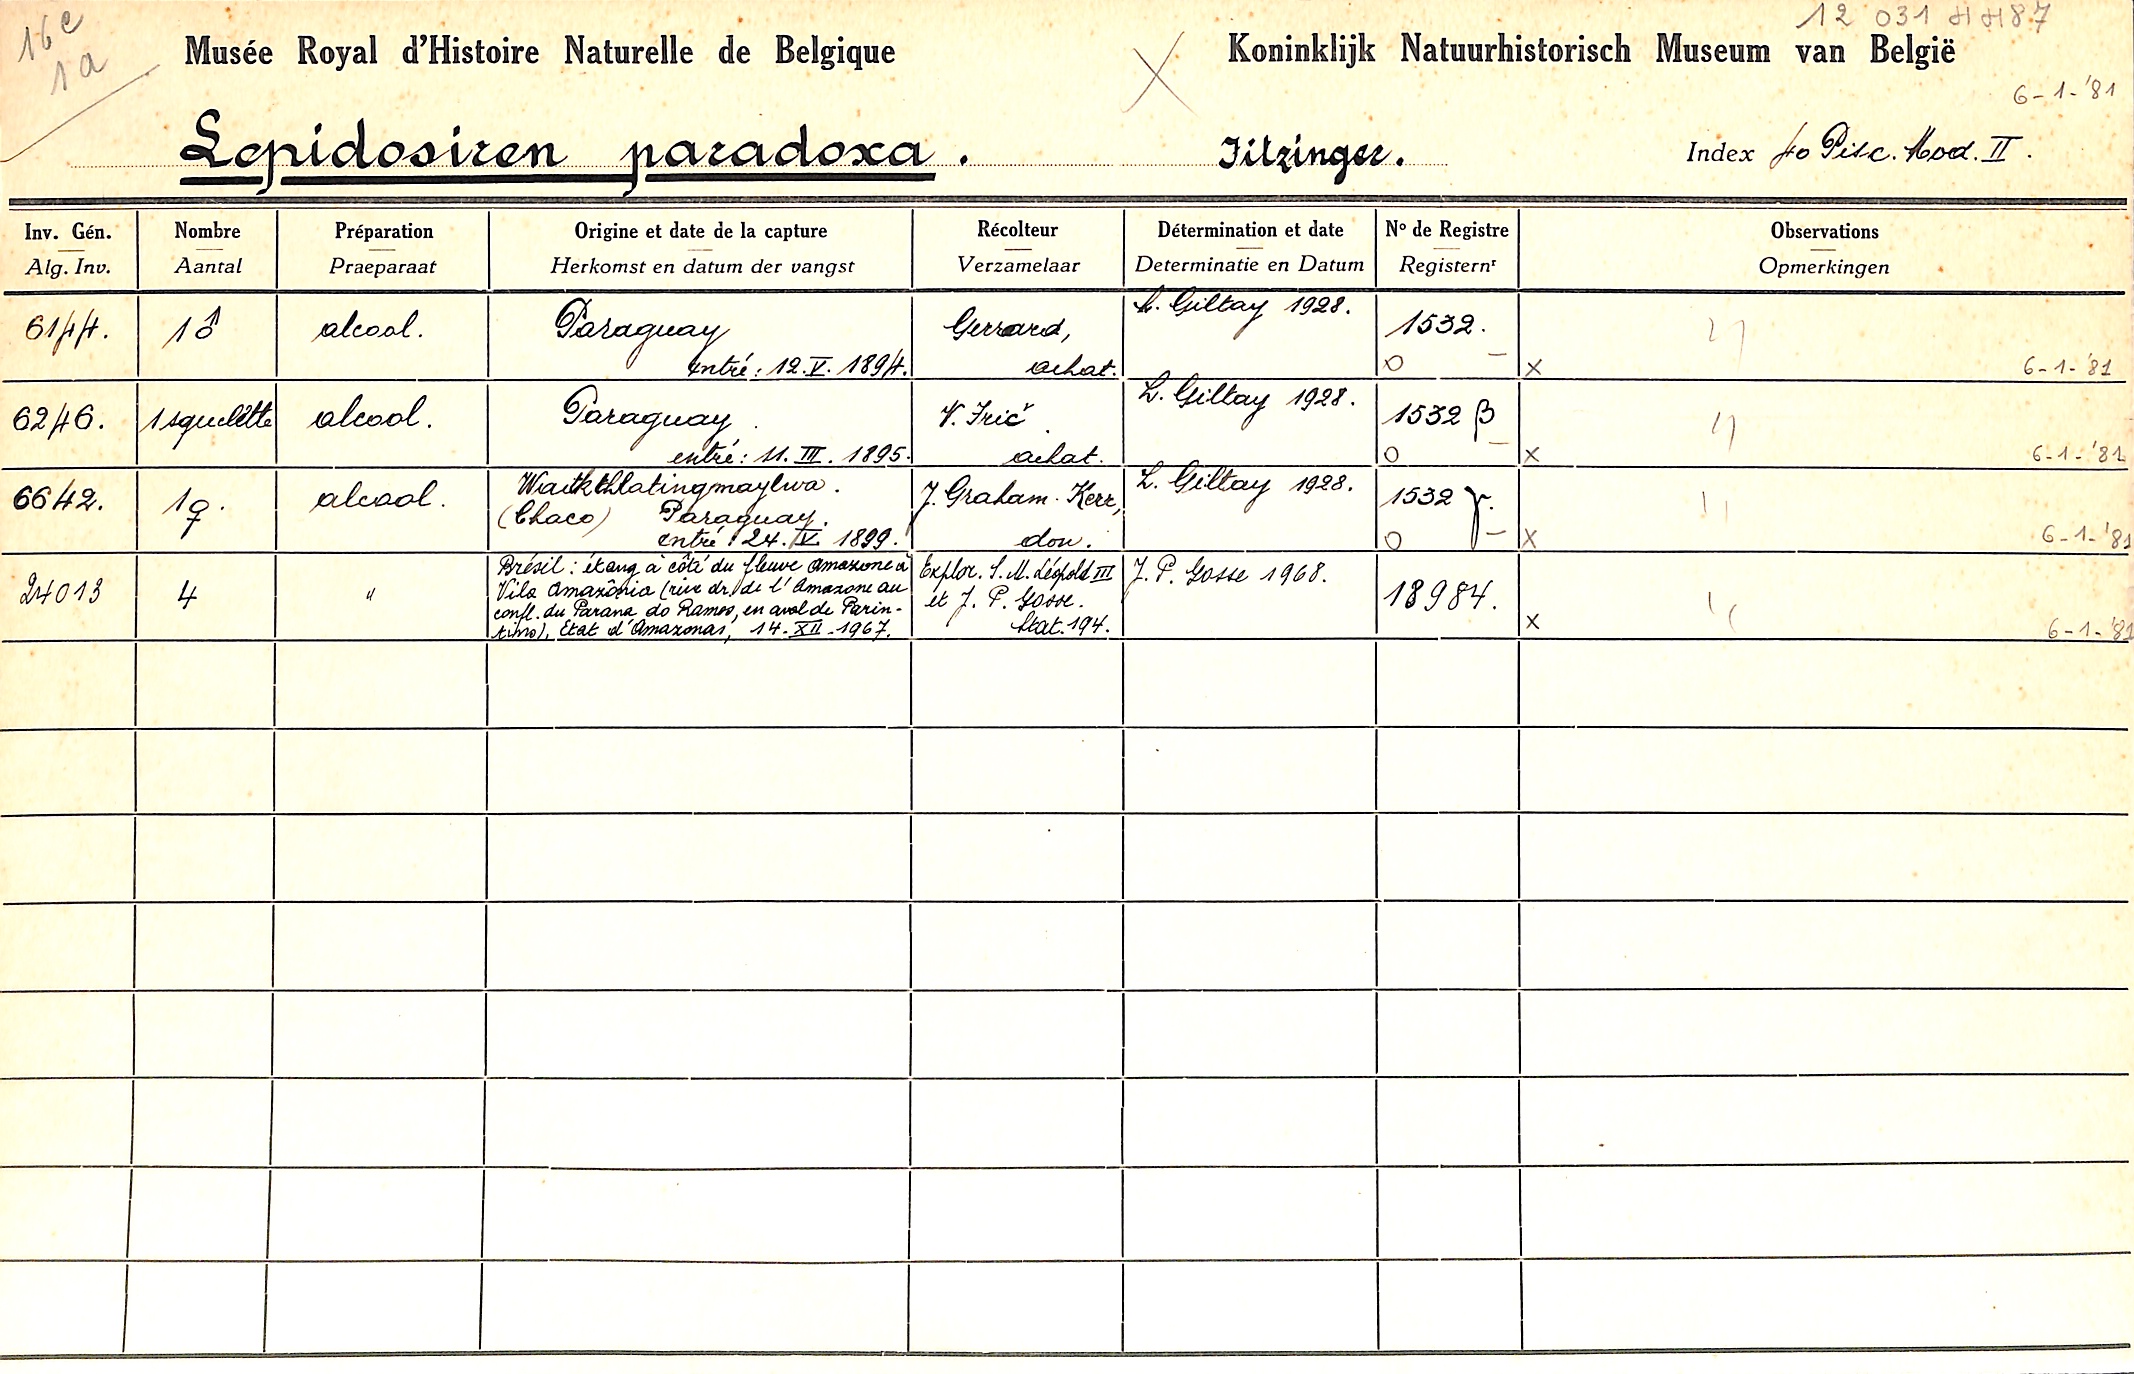 16e
1a
12 031 HH87
Musée Royal d'Histoire Naturelle de Belgique
Koninklijk Natuurhistorisch Museum van België
6-1-'81
Lepidosiren paradoxa. Fitzinger. Index Pisc. Mod. II.
Inv. Gén. Nombre Préparation Origine et date de la capture Récolteur Détermination et date Nº de Registre Observations
Alg. Inv. Aantal Praeparaat Herkomst en datum der vangst Verzamelaar Determinatie en Datum Registernr Opmerkingen
6144. 1♂ alcool. Paraguay Gerrard, L. Giltay 1928. 1532.
entré: 12.V.1894. achat. O x 6-1-'81
6246. 1 squelette alcool. Paraguay. V. Frič. L. Giltay 1928. 1532 β
entré: 11.III.1895. achat. O x 6-1-'81
6642. 1♀. alcool. Waikthlatingmaylwa. J. Graham-Kerr, L. Giltay 1928. 1532 γ.
(Chaco) Paraguay.
entré: 24.V.1899. don. O x 6-1-'81
24013 4 " Brésil: étang à côté du fleuve Amazone à Explor. S.M. Léopold III J. P. Gosse 1968. 18984.
Vila Amazônia (rive dr. de l'Amazone au et J. P. Gosse.
confl. du Parana do Ramos, en aval de Parin-
tins), Etat d'Amazonas, 14.XII.1967. Stat. 194. x 6-1-'81